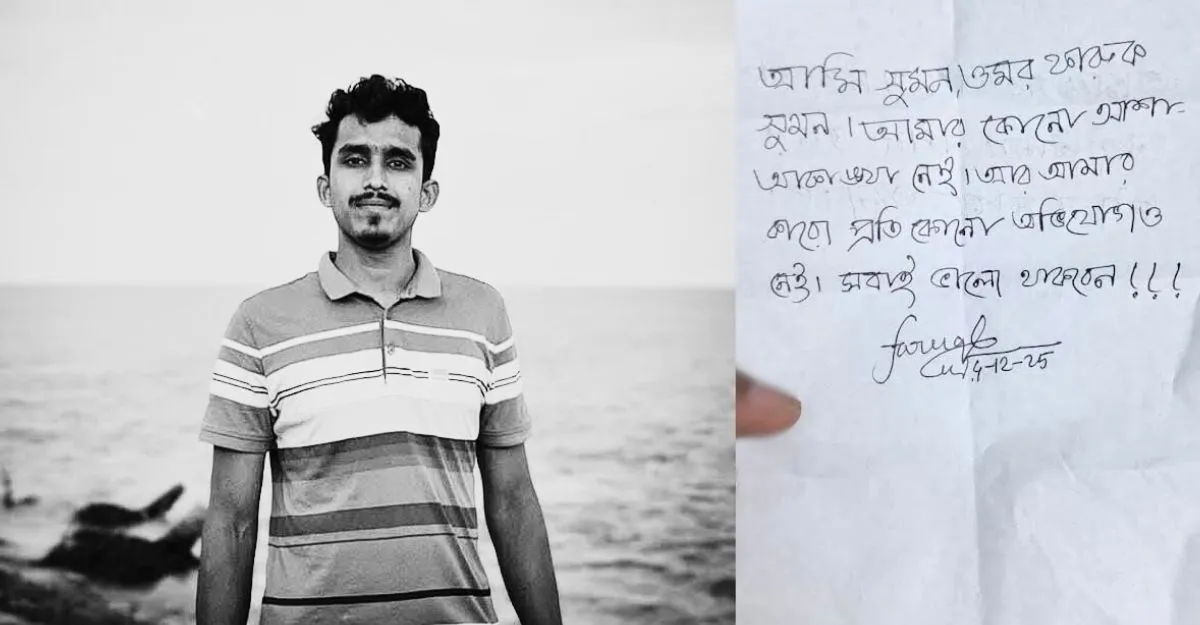 আমি সুমন, ওমর ফারুক
সুমন। আমার কোনো আশা-
আকাঙ্খা নেই। আর আমার
কারো প্রতি কোনো অভিযোগও
নেই। সবাই ভালো থাকবেন!!!
faruqb
-12-25